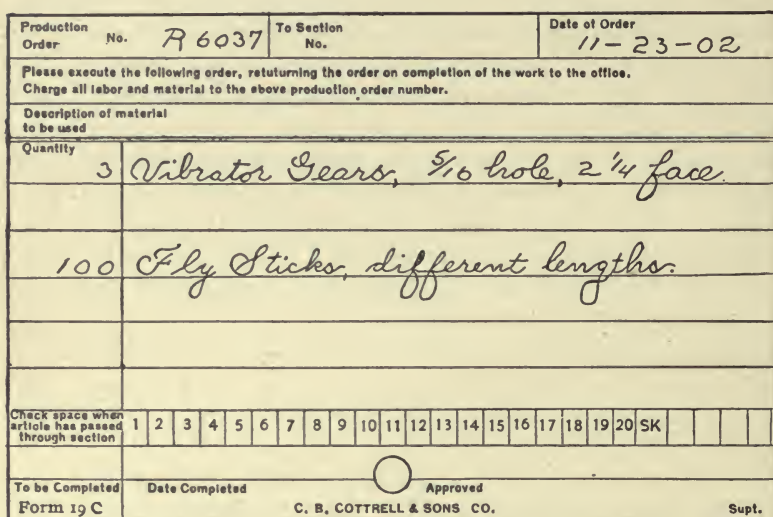 Production Order No. R 6037 To Section No. Date of Order 11-23-02
Please execute the following order, retuturning the order on completion of the work to the office.
Charge all labor and material to the above production order number.
Description of material
to be used
Quantity
3 Vibrator Gears, 5/16 hole, 2 1/4 face.
100 Fly Sticks, different lengths.
Check space when article has passed through section 1 2 3 4 5 6 7 8 9 10 11 12 13 14 15 16 17 18 19 20 SK
To be Completed Date Completed Approved
Form 19 C C. B. COTTRELL & SONS CO. Supt.